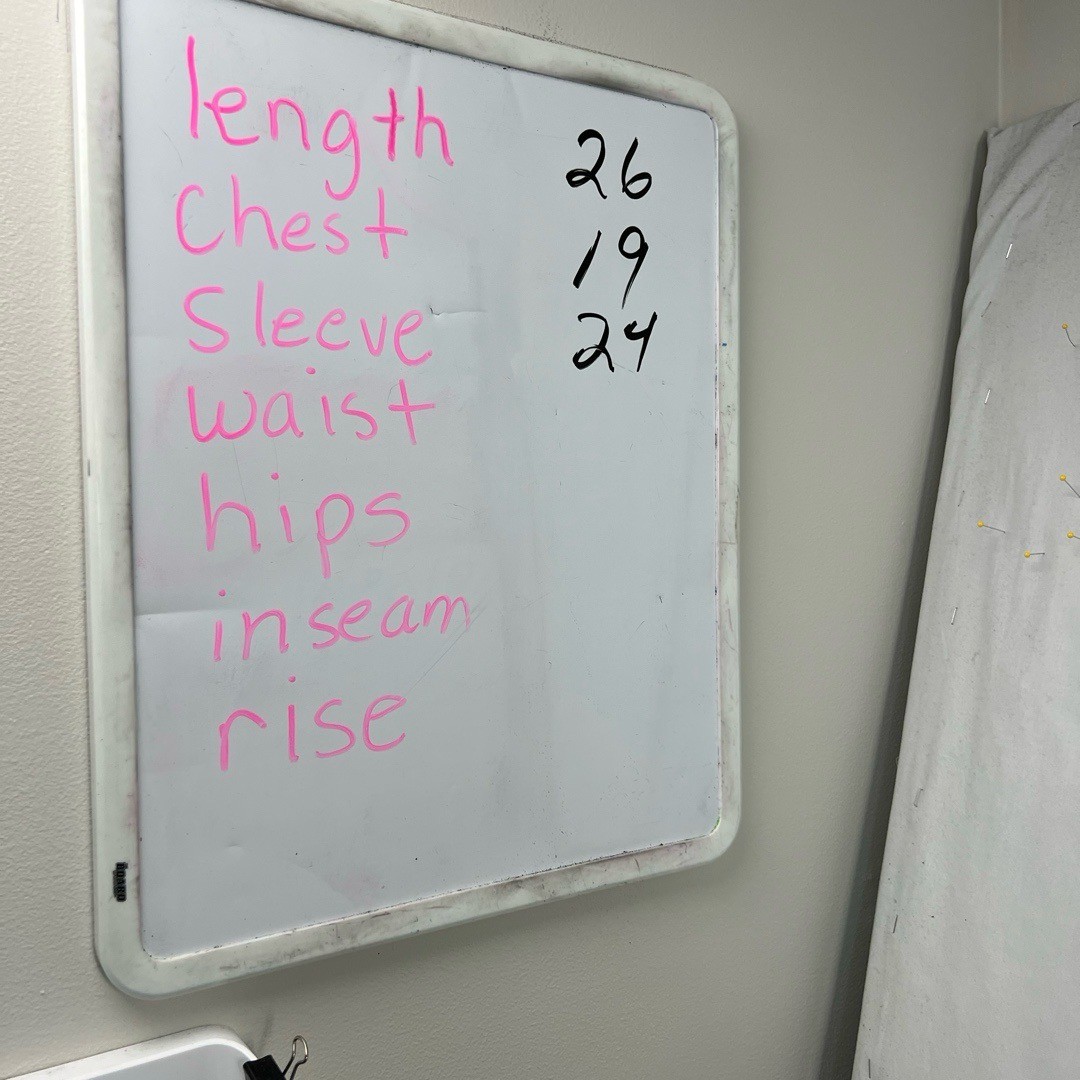 length 26
Chest 19
Sleeve 24
waist
hips
inseam
rise
BOARD